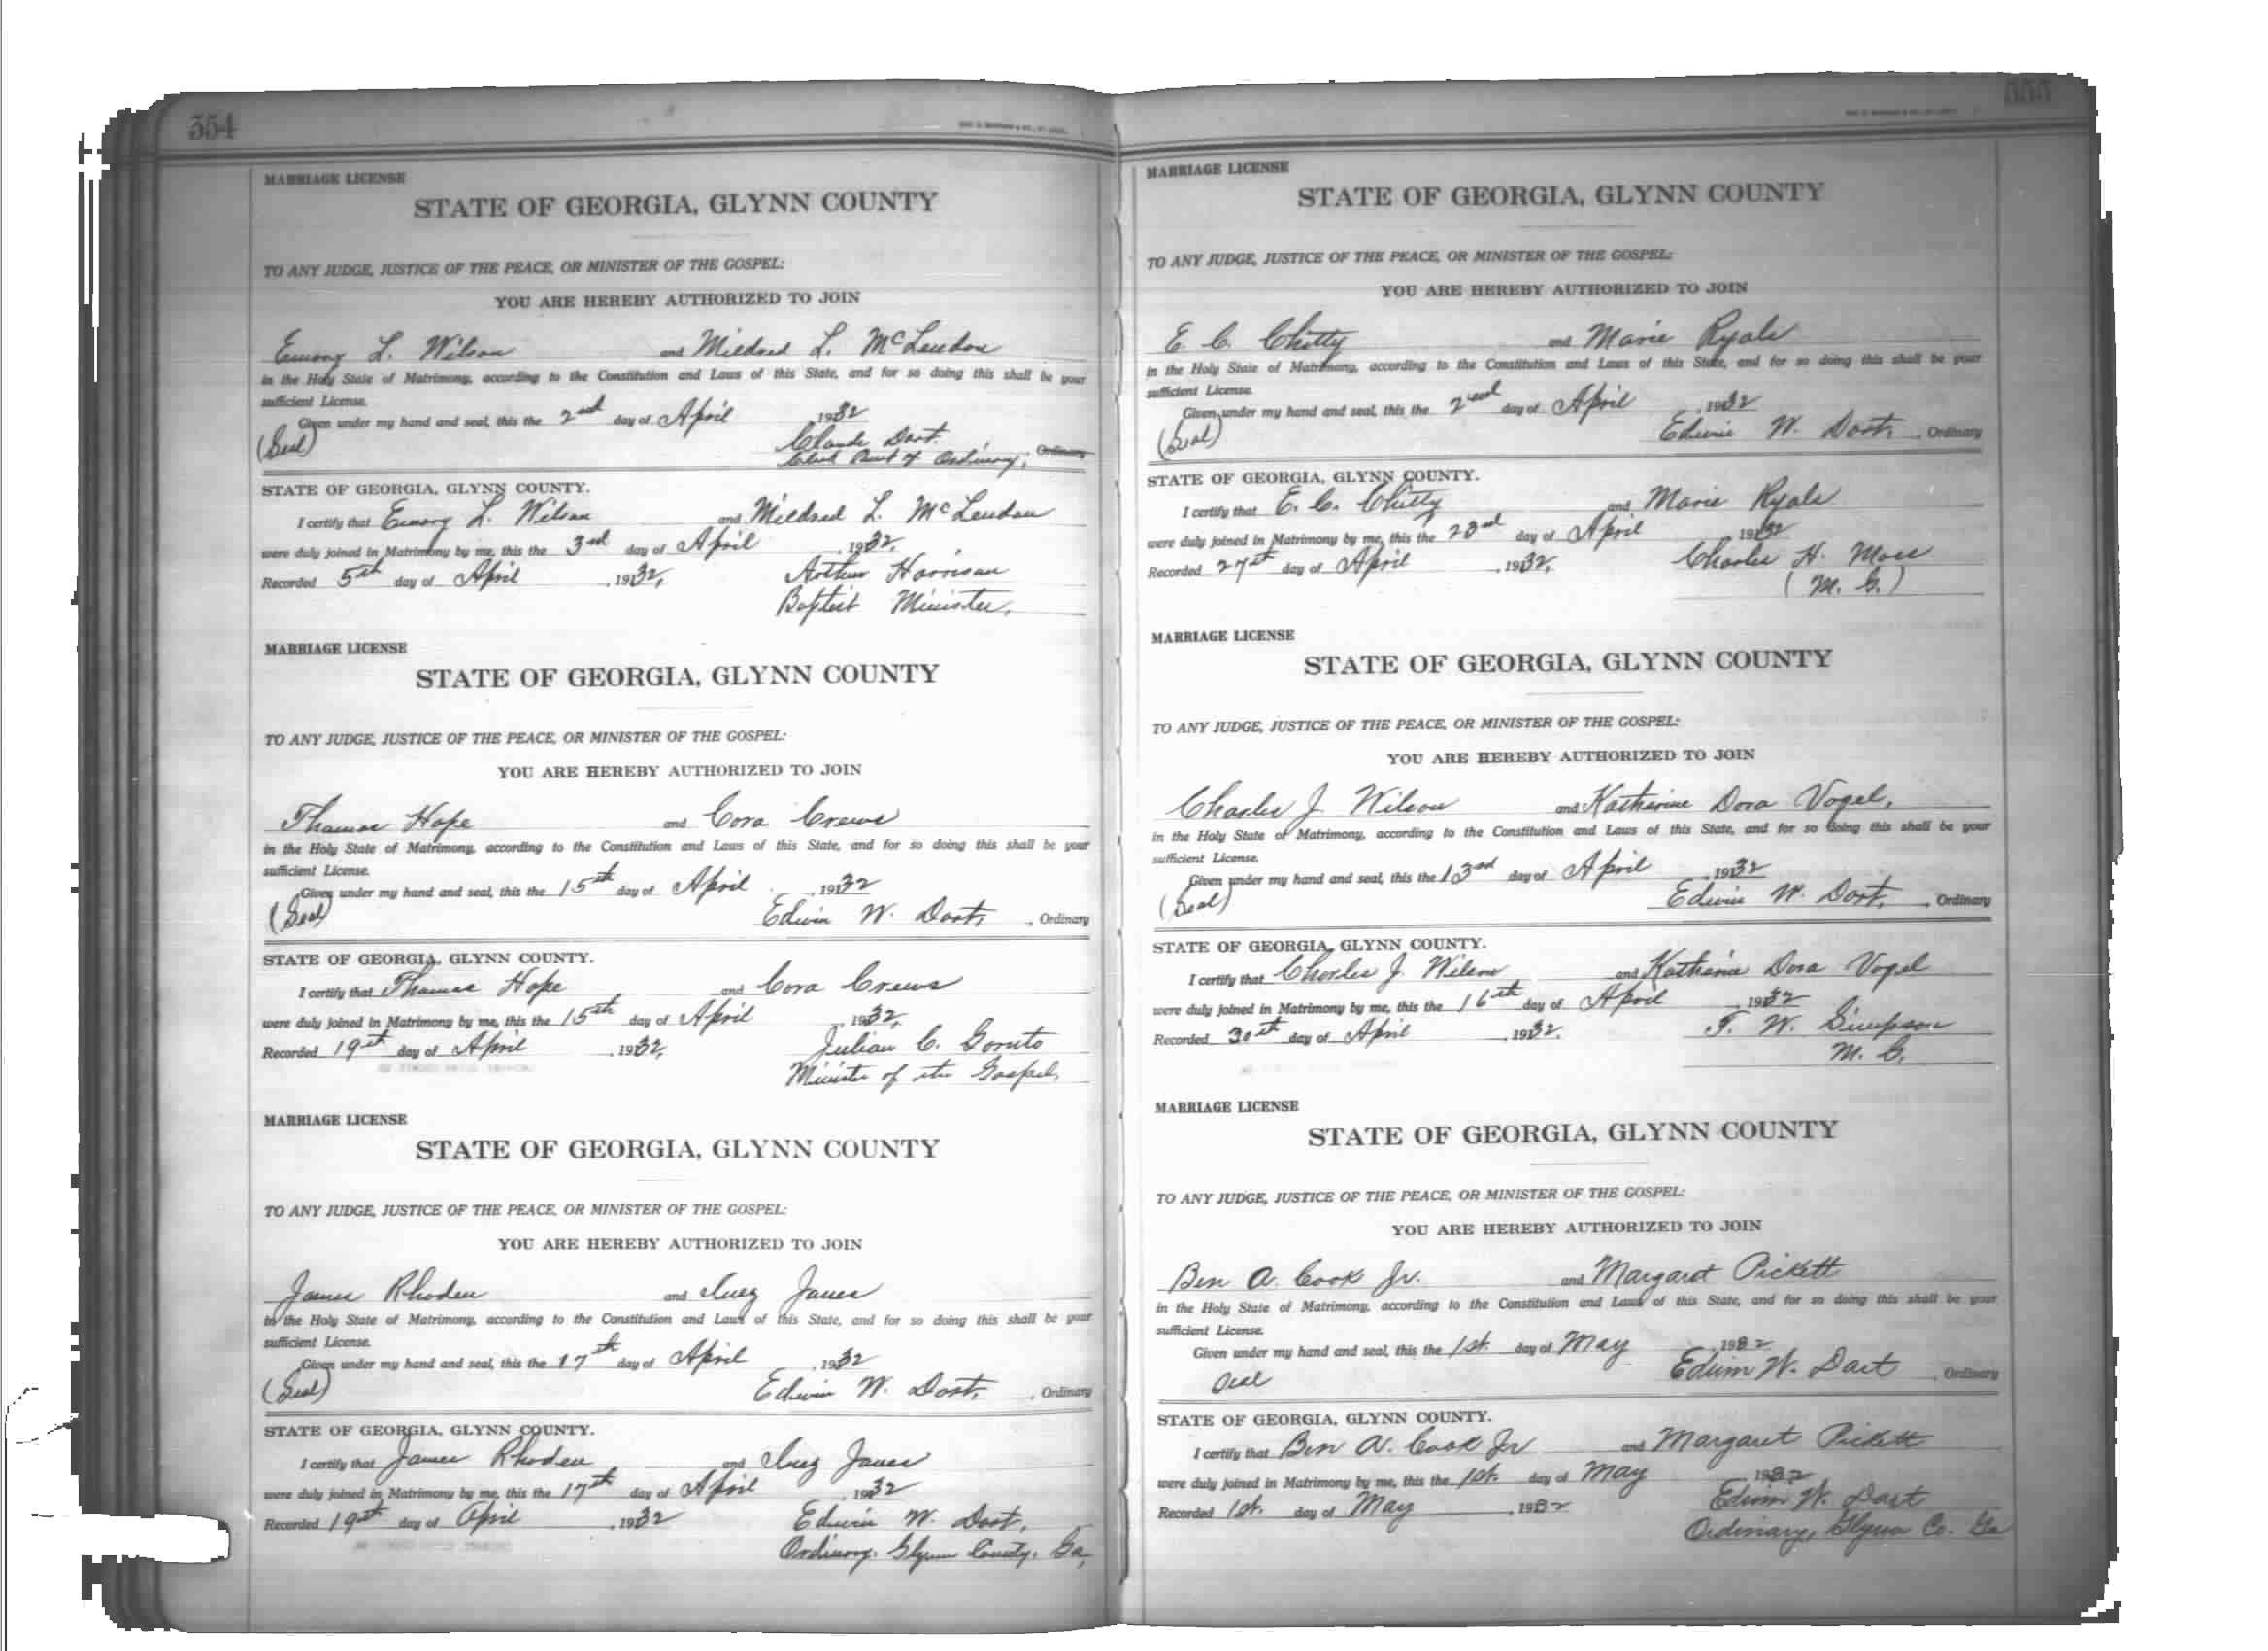 354
MARRIAGE LICENSE
STATE OF GEORGIA, GLYNN COUNTY
TO ANY JUDGE, JUSTICE OF THE PEACE, OR MINISTER OF THE GOSPEL:
YOU ARE HEREBY AUTHORIZED TO JOIN
Emory L. Wilson and Mildred L. McLendon
in the Holy State of Matrimony, according to the Constitution and Laws of this State, and for so doing this shall be your
sufficient License.
Given under my hand and seal, this the 2nd day of April 1932
(Seal) Claude Dart.
Clerk Court of Ordinary, Ordinary
STATE OF GEORGIA, GLYNN COUNTY.
I certify that Emory L. Wilson and Mildred L. McLendon
were duly joined in Matrimony by me, this the 3rd day of April 1932,
Recorded 5th day of April, 1932, Arthur Harrison
Baptist Minister.
MARRIAGE LICENSE
STATE OF GEORGIA, GLYNN COUNTY
TO ANY JUDGE, JUSTICE OF THE PEACE, OR MINISTER OF THE GOSPEL:
YOU ARE HEREBY AUTHORIZED TO JOIN
Thomas Hope and Cora Crews
in the Holy State of Matrimony, according to the Constitution and Laws of this State, and for so doing this shall be your
sufficient License.
Given under my hand and seal, this the 15th day of April, 1932
(Seal) Edwin W. Dart, Ordinary
STATE OF GEORGIA, GLYNN COUNTY.
I certify that Thomas Hope and Cora Crews
were duly joined in Matrimony by me, this the 15th day of April, 1932,
Recorded 19th day of April, 1932, Julian C.
Minister of the Gospel,
MARRIAGE LICENSE
STATE OF GEORGIA, GLYNN COUNTY
TO ANY JUDGE, JUSTICE OF THE PEACE, OR MINISTER OF THE GOSPEL:
YOU ARE HEREBY AUTHORIZED TO JOIN
James Rhoden and Inez Jones
in the Holy State of Matrimony, according to the Constitution and Laws of this State, and for so doing this shall be your
sufficient License.
Given under my hand and seal, this the 17th day of April, 1932
(Seal) Edwin W. Dart, Ordinary
STATE OF GEORGIA, GLYNN COUNTY.
I certify that James Rhoden and Inez Jones
were duly joined in Matrimony by me, this the 17th day of April, 1932
Recorded 19th day of April, 1932 Edwin W. Dart,
Ordinary, Glynn County, Ga,
355
MARRIAGE LICENSE
STATE OF GEORGIA, GLYNN COUNTY
TO ANY JUDGE, JUSTICE OF THE PEACE, OR MINISTER OF THE GOSPEL:
YOU ARE HEREBY AUTHORIZED TO JOIN
E. C. Chitty and Marie Ryals
in the Holy State of Matrimony, according to the Constitution and Laws of this State, and for so doing this shall be your
sufficient License.
Given under my hand and seal, this the 2nd day of April, 1932
(Seal) Edwin W. Dart, Ordinary
STATE OF GEORGIA, GLYNN COUNTY.
I certify that E. C. Chitty and Marie Ryals
were duly joined in Matrimony by me, this the 23rd day of April 1932
Recorded 27th day of April, 1932, Charles H.
(M. G.)
MARRIAGE LICENSE
STATE OF GEORGIA, GLYNN COUNTY
TO ANY JUDGE, JUSTICE OF THE PEACE, OR MINISTER OF THE GOSPEL:
YOU ARE HEREBY AUTHORIZED TO JOIN
Charles J. Wilson and Katherine Dora Vogel,
in the Holy State of Matrimony, according to the Constitution and Laws of this State, and for so doing this shall be your
sufficient License.
Given under my hand and seal, this the 13rd day of April, 1932
(Seal) Edwin W. Dart, Ordinary
STATE OF GEORGIA, GLYNN COUNTY.
I certify that Charles J. Wilson and Katherine Dora Vogel
were duly joined in Matrimony by me, this the 16th day of April, 1932
Recorded 30th day of April, 1932, T. W. Simpson
M. G.
MARRIAGE LICENSE
STATE OF GEORGIA, GLYNN COUNTY
TO ANY JUDGE, JUSTICE OF THE PEACE, OR MINISTER OF THE GOSPEL:
YOU ARE HEREBY AUTHORIZED TO JOIN
Ben A. Cook Jr. and Margaret Pickett
in the Holy State of Matrimony, according to the Constitution and Laws of this State, and for so doing this shall be your
sufficient License.
Given under my hand and seal, this the 1st. day of May, 1932
Seal Edwin W. Dart, Ordinary
STATE OF GEORGIA, GLYNN COUNTY.
I certify that Ben A. Cook Jr and Margaret Pickett
were duly joined in Matrimony by me, this the 1st. day of May, 1932
Recorded 1st. day of May, 1932 Edwin W. Dart
Ordinary, Glynn Co. Ga